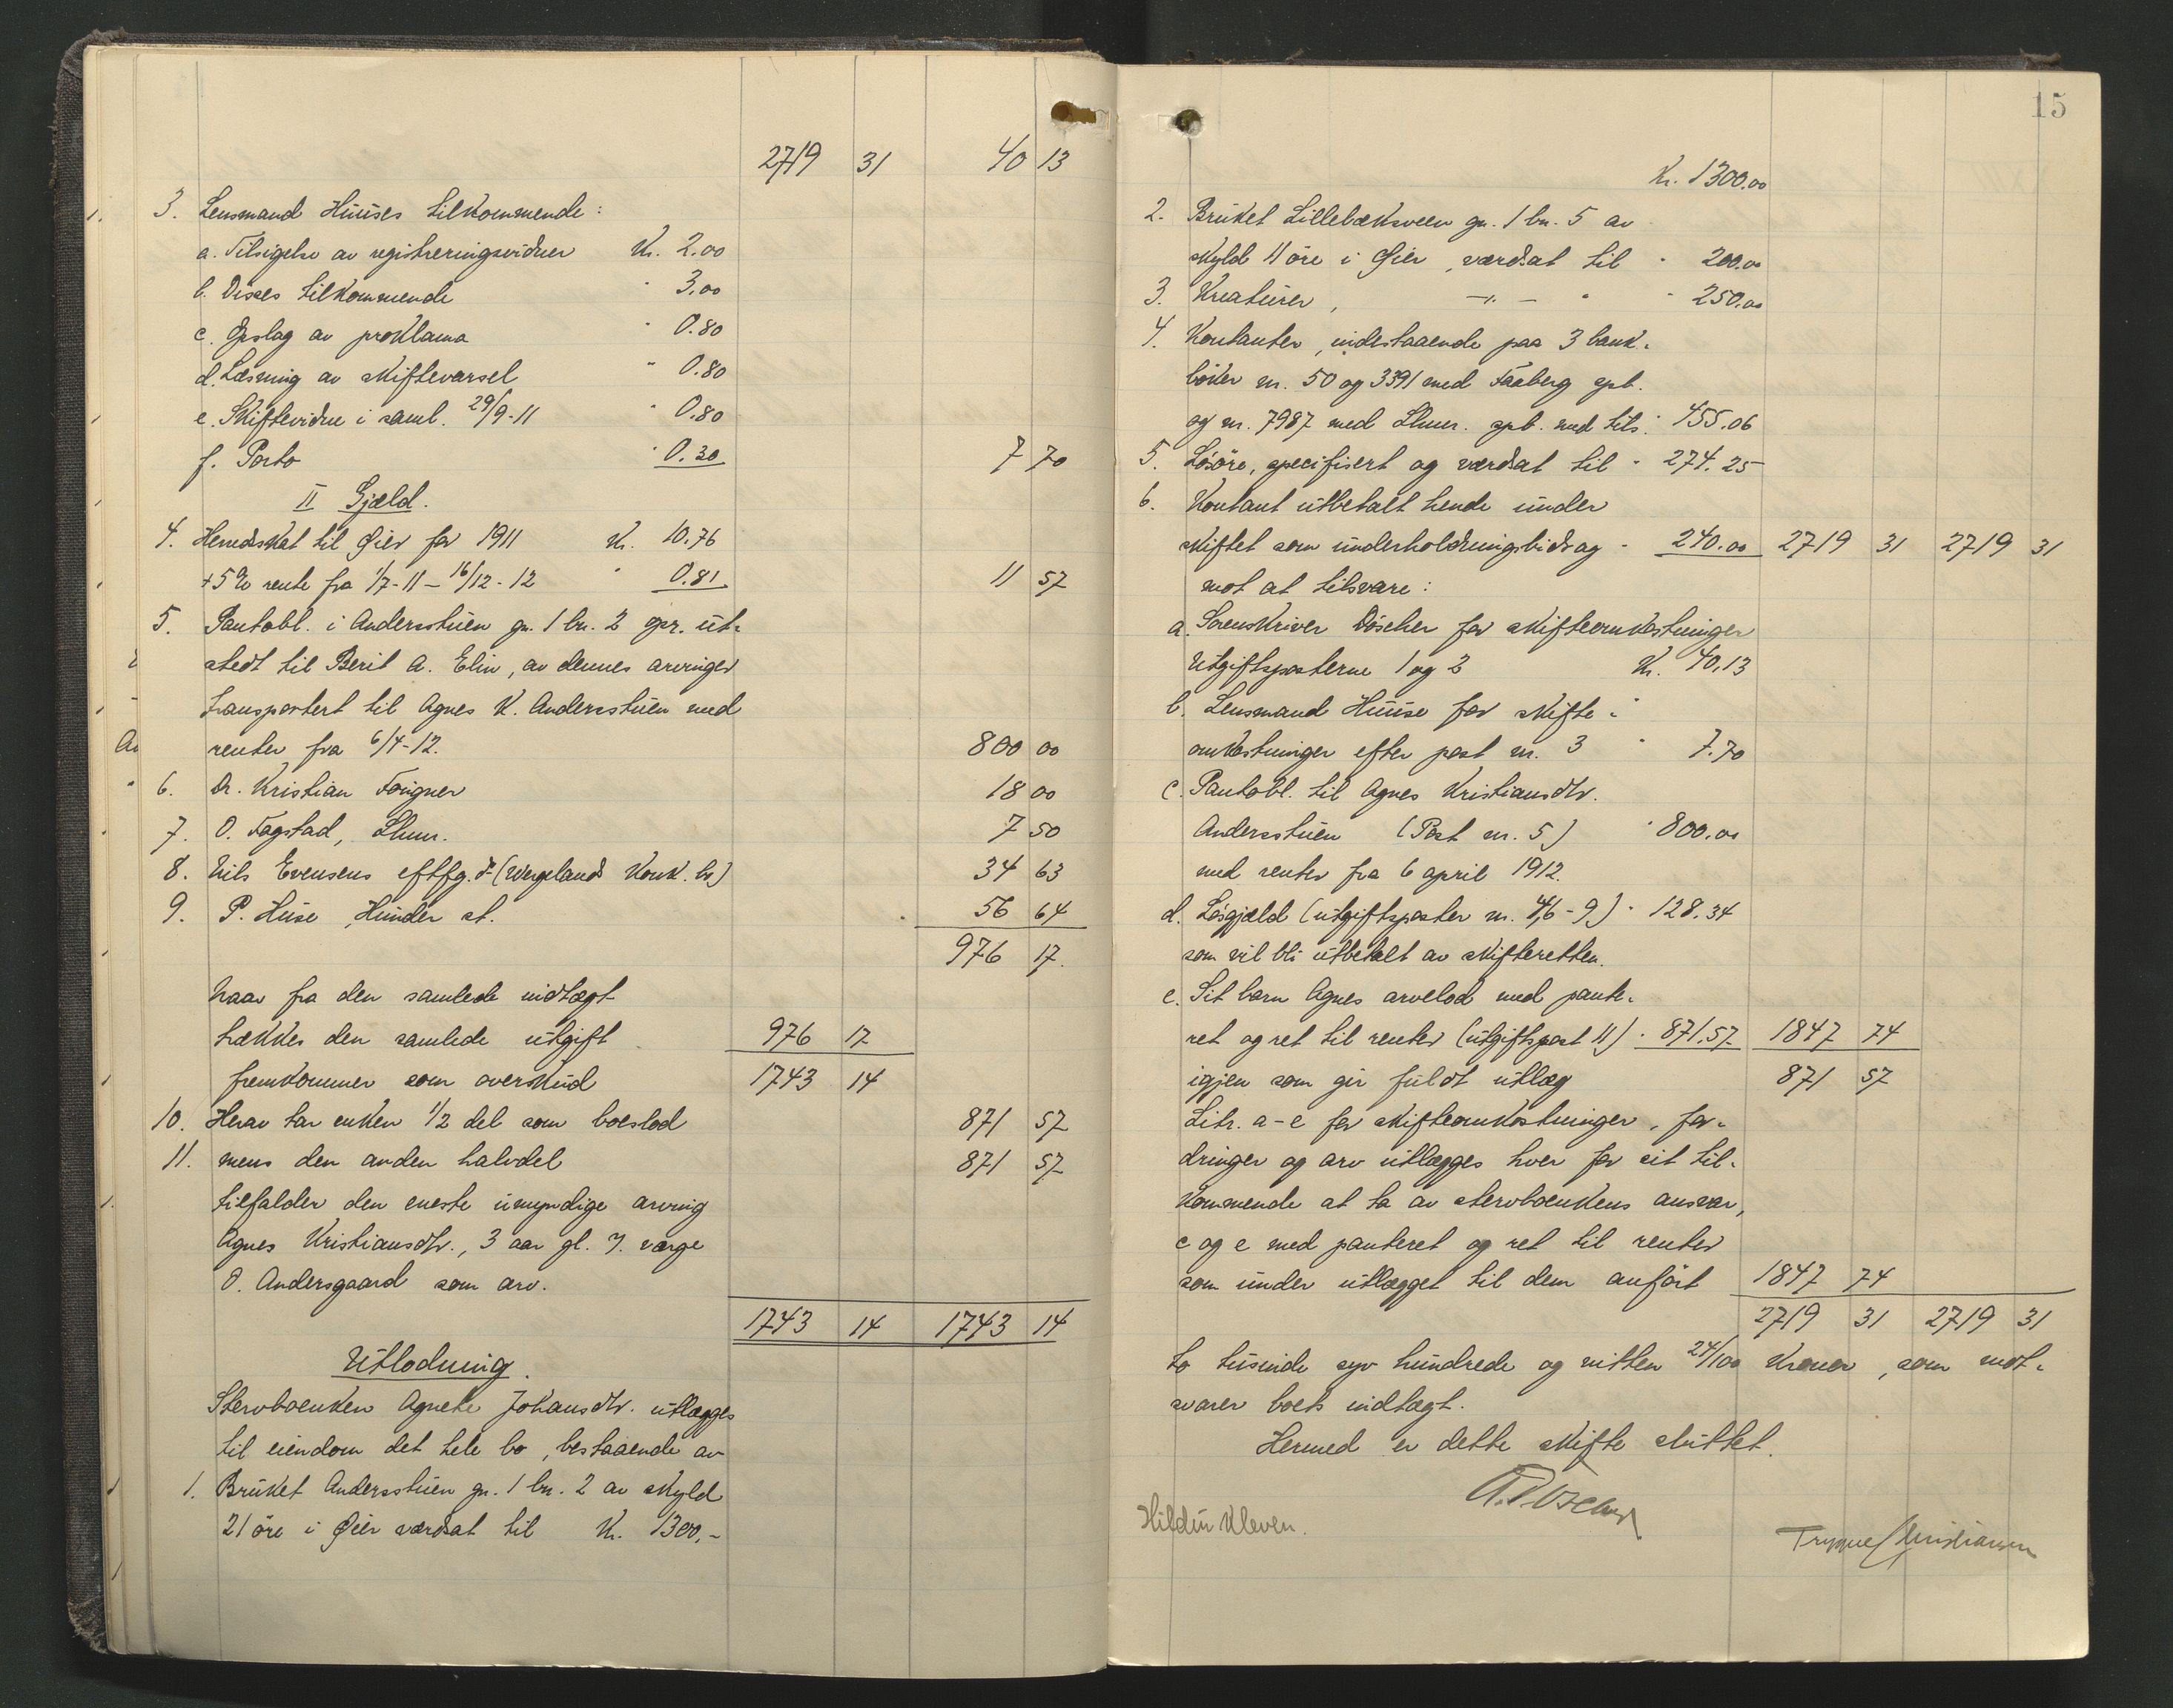 2719 31 40 13
3. Lensmand Huuses tilkommende:
a. Tilsigelse av registreringsvidner Kr. 2.00
b. Disses tilkommende " 3.00
c. Opslag av proklama " 0.80
d. Læsning av skiftevarsel " 0.80
e. Skiftevidne i saml. 29/9-11 " 0.80
f. Porto " 0.30 7 70
II Gjæld.
4. Herredskat til Øier for 1911 Kr. 10.76
+5% rente fra 1/7-11 – 16/12-12 " 0.81 11 57
5. Pantobl. i Andersstuen gn. 1 bn. 2 opr. ut-
stedt til Berit A. Elin, av dennes arvinger
transportert til Agnes K. Andersstuen med
renter fra 6/4-12. 800 00
6. Dr. Kristian Foigner 18 00
7. O. Fagstad, Lhmr. 7 50
8. Nils Evensens eftfg. (Wergelands Konk. bo) 34 63
9. P. Huse, Hunder st. 56 64
976 17.
Naar fra den samlede indtægt
trækkes den samlede utgift 976 17
fremkommer som overskud 1743 14
10. Herav tar enken 1/2 del som boeslod 871 57
11. mens den anden halvdel 871 57
tilfalder den eneste umyndige arving
Agnes Kristiansdtr., 3 aar gl. F. verge
O. Andersgaard som arv.
1743 14 1743 14
Utlodning.
Stervboenken Agnete Johansdtr. utlægges
til eiendom det hele bo, bestaaende av
1. Bruket Andersstuen gn. 1 bn. 2 av skyld
21 öre i Øier værdsat til Kr. 1300,-
15
Kr. 1300.00
2. Bruket Lillebæksveen gn. 1 bn. 5 av
skyld 11 öre i Øier, værdsat til " 200.00
3. Kreaturer, —"— " " 250.00
4. Kontanter, indestaaende paa 3 bank-
böker nr. 50 og 3391 med Faaberg spb.
og nr. 7987 med Lhmr. spb. med tils. " 455.06
5. Lösöre, specifisert og værdsat til " 274.25
6. Kontant utbetalt hende under
skiftet som underholdningsbidrag " 240.00 2719 31 2719 31
mot at tilsvare:
a. Sorenskriver Döscher for skifteomkostninger
Utgiftsposterne 1 og 2 Kr. 40.13
b. Lensmand Huuse for skifte-
omkostninger efter post nr. 3 " 7.70
c. Pantobl. til Agnes Kristiansdtr.
Andersstuen (Post nr. 5) " 800.00
med renter fra 6 april 1912.
d. Lösgjæld (utgiftsposter nr. 4,6-9) " 128.34
som vil bli utbetalt av skifteretten.
e. Sit barn Agnes arvelod med pante-
ret og ret til renter (utgiftspost 11) " 871.57 1847 74
igjen som gir fuldt utlæg 871 57
Litr. a-e for skifteomkostninger, for-
dringer og arv utlægges hver for sit til-
kommende at ta av stervboenkens ansvar,
c og e med panteret og ret til renter
som under utlægget til dem anfört 1847 74
2719 31 2719 31
to tusinde syv hundrede og nitten 24/100 Kroner, som mot-
svarer boets indtægt.
Hermed er dette skifte sluttet.
Hildur Kleven.
Trygve Christiansen